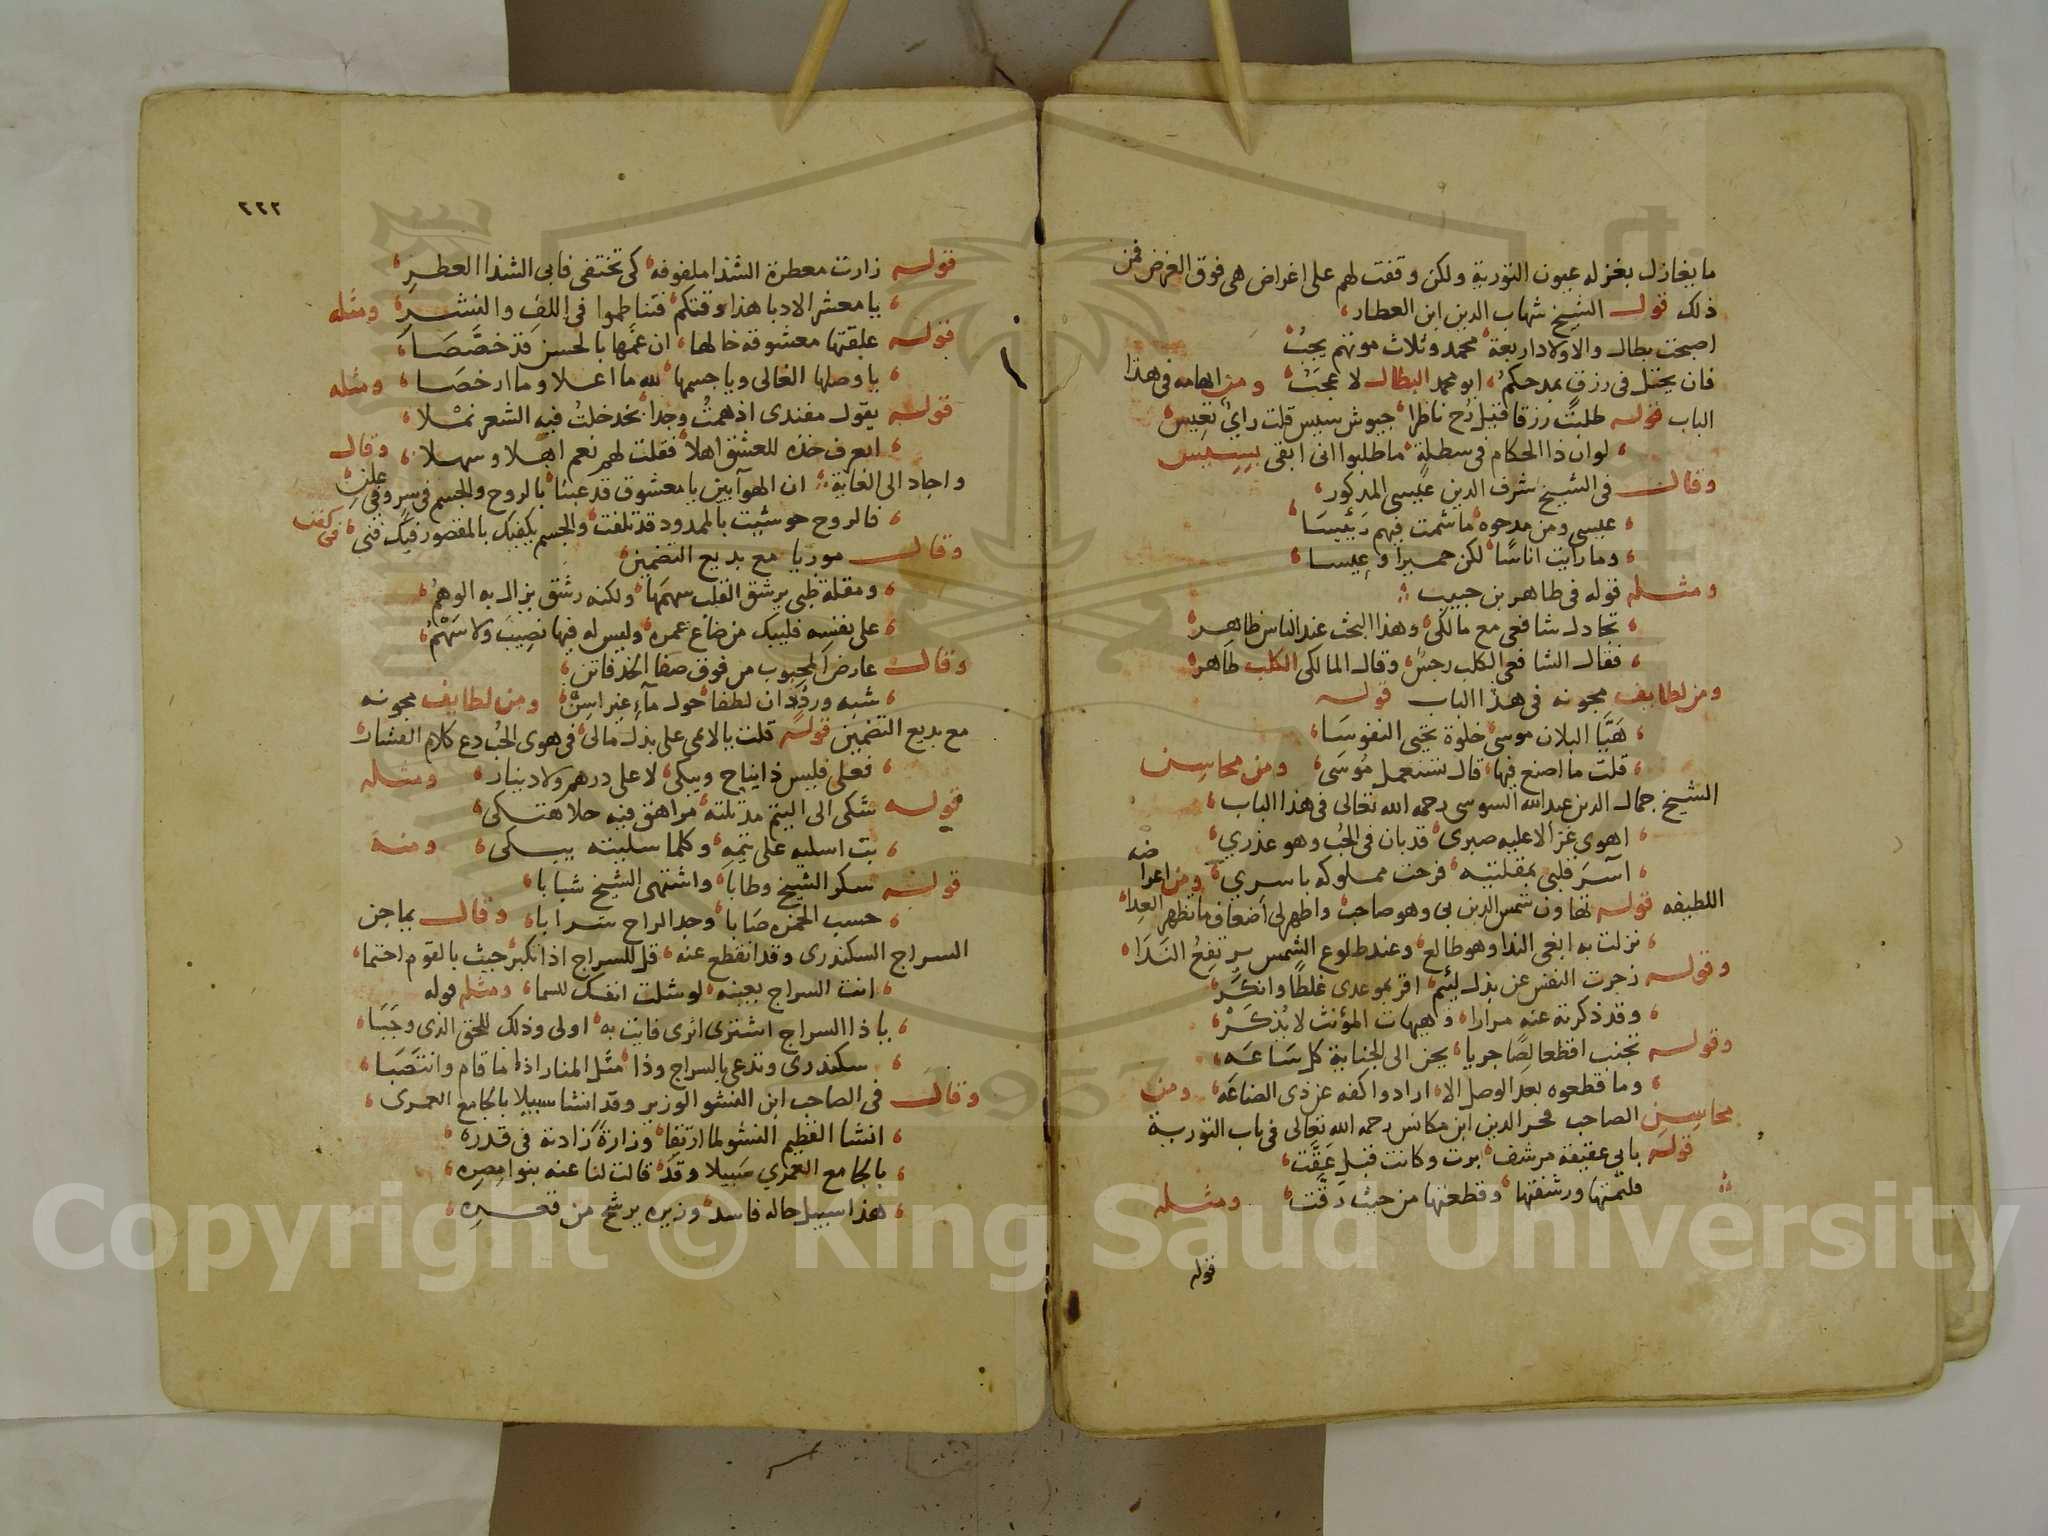 ما يغازل بغزله عيون التورية ولكن وقفت لهم على اغراض هى فوق الغرض فمن
ذلك قوله الشيخ شهاب الدين ابن العطار
اصبحت بطال والاولاد اربعة محمد وثلاث مونهم يجب
فان يختل فى رزق بمدحكم ابو محمد البطال لا عجب ومن ابهامه فى هذا
الباب قوله طلبت رزقا فقيل رح ناظرا جيوش سيس قلت راي تعيس
لو ان ذا الحكام فى سطلة ما طلبوا انى ابقى بسيس
وقال فى الشيخ شرف الدين عيسى المذكور
عيسى ومن مدحوه ما شمت فيهم رئيسا
وما رايت اناسا لكن حميرا وعيسا
ومثله قوله فى طاهر بن حبيب
تجادل شافعى مع مالكى وهذا البحث عند الناس ظاهر
فقال الشافعى الكلب رجس وقال المالكى الكلب طاهر
ومن لطايف مجونه فى هذا الباب قوله
هيّا البلان موسى خلوة تحيى النفوسا
قلت ما اصنع فيها قال تستعمل موسى ومن محاسن
الشيخ جمال الدين عبد الله السوسى رحمه الله تعالى فى هذا الباب
اهوى غزالا عليه صبرى قد بان فى الحب وهو عذري
آسر قلبى بمقلتيه فرحت مملوكه باسري ومن اغراضه
اللطيفه قوله تهاون شمس الدين بى وهو صاحب واظهر لى اضعاف ما تظهر العدا
نزلت به ابغى الندا وهو طالع وعند طلوع الشمس يرتفع الندا
وقوله زجرت النفس عن بذل لئيم اقر بموعدى غلطا وانكر
وقد ذكرته عنه مرارا وهيهات المؤنث لا يذكر
وقوله تجنب اقطعا لصا جريا يحن الى الجناية كل ساعه
وما قطعوه بعد الوصل الا ارادوا كفه عن ذى الصناعه ومن
محاسن الصاحب فخر الدين ابن مكانس رحمه الله تعالى فى باب التورية
قوله بابى عقيقة مرشف برت وكانت قبل عقت
فلثمتها ورشفتها وقطعتها من حيث رقت ومثله
قوله
٢٢٢
قوله زارت معطرة الشذا ملفوفه كى تختفى فابى الشذا العطر
يا معشر الادبا هذا وقتكم فتناظموا فى اللف والنشر ومثله
قوله علقتها معشوقة خالها ان عمها بالحسن قد خصصا
يا وصلها الغالى ويا جسمها لله ما اعلا وما ارخصا ومثله
قوله يقول مفندى اذ همت وجدا بخد خلت فيه الشعر نملا
اتعرف خده للعشق اهلا فقلت لهم نعم اهلا وسهلا وقال
واجاد الى الغاية ان الهوآيين يا معشوق قد عبثا بالروح والجسم فى سر وفى علن
فالروح حوشيت بالممدود قد تلفت والجسم يكفيك بالمقصور فيك فنى فى كفن
وقال موريا مع بديع التضمين
ومقلة ظبى يرشق القلب سهمها ولكنه رشق يزال به الوهم
على نفسه فليبك من ضاع عمره وليس له فيها نصيب ولا سهم
وقال عارض المحبوب من فوق صفا الخد فاتن
شبه ورد ان لطفا حول مآء غير اسن ومن لطايف مجونه
مع بديع التضمين قوله قلت يا لائمى على بذل مالى فى هوى الحب دع كلام الفشار
فعلى فليس ذا يناح ويبكى لا على درهم ولا دينار ومثله
قوله شكى الى اليتم مذ نلته مراهق فيه حلا هتكى
بت اسليه على يتمه وكلما سليته يبكى ومنه
قوله سكر الشيخ وطابا واشتهى الشيخ شبابا
حسب الخمره صابا وجد الراح سرابا وقال يماجن
السراج السكندرى وقد انقطع عنه قل للسراج اذا تكبر حيث بالقوم احتما
انت السراج بعينه لو شلت انفك للسما ومثله قوله
يا ذا السراج اشترى ايرى فانت به اولى وذلك للحق الذى وجبا
سكندرى وتدعى بالسراج وذا مثل المنار اذا ما قام وانتصبا
وقال فى الصاحب ابن النشو الوزير وقد انشا سبيلا بالجامع العمرى
انشا القطيم النشو لما ارتقا وزارة زادته فى قدره
بالجامع العمري سبيلا وقد قالت لنا عنه بنوا مصره
هذا سبيل حاله فاسد وزيره يرشح من قعره
Copyright © King Saud University
1957